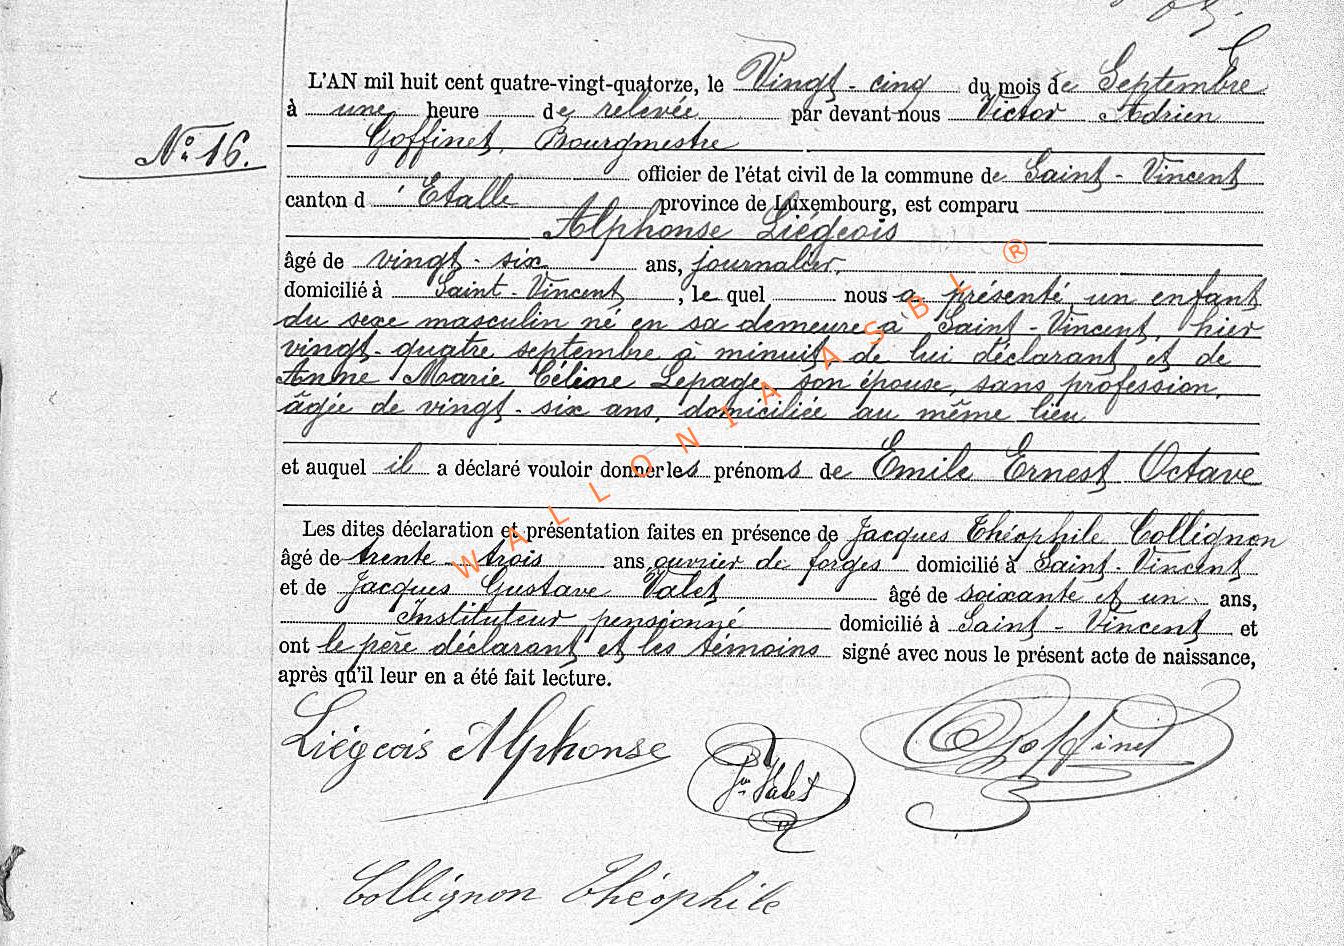 L'AN mil huit cent quatre-vingt-quatorze, le Vingt-cinq du mois de Septembre
à une heure de relevée par devant nous Victor Adrien
Goffinet, Bourgmestre
N° 16.
officier de l'état civil de la commune de Saint-Vincent
canton d'Etalle province de Luxembourg, est comparu
Alphonse Liégeois
âgé de vingt-six ans, journalier,
domicilié à Saint-Vincent, le quel nous a présenté un enfant
du sexe masculin né en sa demeure à Saint-Vincent, hier
vingt-quatre septembre à minuit, de lui déclarant, et de
Anne Marie Céline Lepage, son épouse, sans profession,
âgée de vingt-six ans, domiciliée au même lieu
et auquel il a déclaré vouloir donner les prénoms de Emile Ernest Octave
Les dites déclaration et présentation faites en présence de Jacques Théophile Collignon
âgé de trente-trois ans, ouvrier de forges domicilié à Saint-Vincent
et de Jacques Gustave Valet âgé de soixante et un ans,
Instituteur pensionné domicilié à Saint-Vincent et
ont le père déclarant et les témoins signé avec nous le présent acte de naissance,
après qu'il leur en a été fait lecture.
Liégeois Alphonse
Valet
Goffinet
Collignon Théophile
WALLONIA ASBL ®